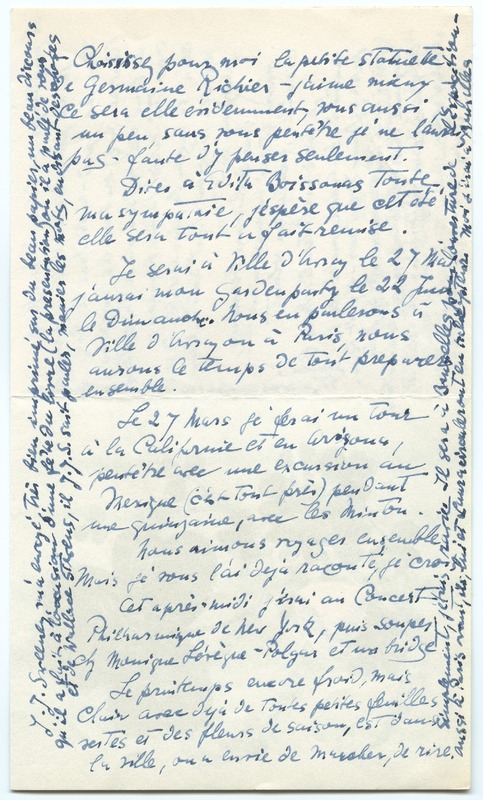 Choisissez pour moi la petite statuette
de Germaine Richier - j'aime mieux
ce sera elle évidemment, vous aussi
un peu, sans vous peutêtre je ne l'aurai
pas - faute d'y penser seulement.
Dites à Edith Boissonnas toute
ma sympathie, j'espère que cet été
elle sera tout à fait remise.
Je serai à Ville d'Avray le 27 Mai
j'aurai mon Gardenparty le 22 Juin
le Dimanche. Nous en parlerons à
Ville d'Avray ou à Paris, nous
aurons le temps de tout préparer
ensemble.
Le 27 Mars je ferai un tour
à la Californie et en Arizona,
peutêtre avec une excursion au
Mexique (c'est tout près) pendant
une quinzaine, avec les Minton.
Nous aimons voyager ensemble
Mais je vous l'ai déjà raconté, je crois
Cet après-midi j'irai au Concert
Philharmonique de New York, puis souper
chez Monique Lévêque-Polgar et un bridge
Le printemps encore froid, mais
clair avec déjà de toutes petites feuilles
vertes et des fleurs de saison, est dans
la ville, on a envie de marcher, de rire,
simplement, d'être ravie. Il sera à Bruxelles pour l'ouverture de l'Exposition -
aussi à Paris
J. J. Sweeney m'a envoyé, très bien imprimé, sur du beau papier, un beau discours
qu'il a fait à l'occasion d'une fête du livre (la présentation) où il a parlé de vous
et de Wallace Stevens, il J.J.S. sait parler, manier les mots, en faisant des éloges